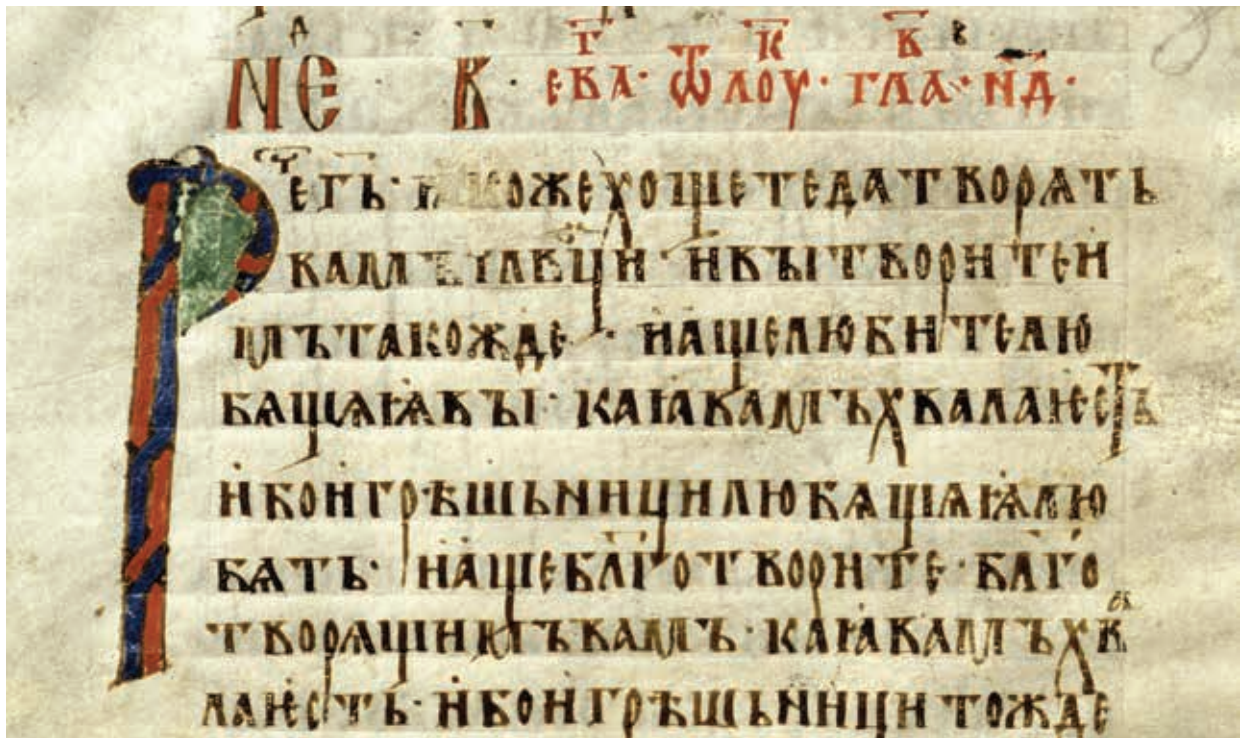 НЕД · В҃ · ЕВА҃Г · Ѿ ЛОУК҃ · ГЛАВ҃ · Н҃Д ·
Рече гь · ꙗкоже хощете да творѧть
вамъ чл҃вци · и вы творите и
мъ такожде · и аще любите лю
бѧщѧѩ вы · каꙗ вамъ хвала ѥсть
ибо и грѣшьници любѧщѧѩ ѩ лю
бѧть · и аще бл҃готворите · благо
творѧщиимъ вамъ · каꙗ вамъ хв
ла ѥсть · ибо и грѣшьници тожде